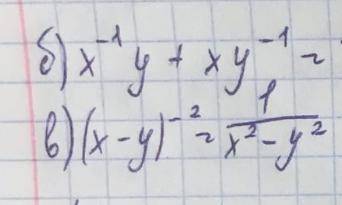 б) x⁻¹y + xy⁻¹ =
в) (x - y)⁻² = 1/(x² - y²)